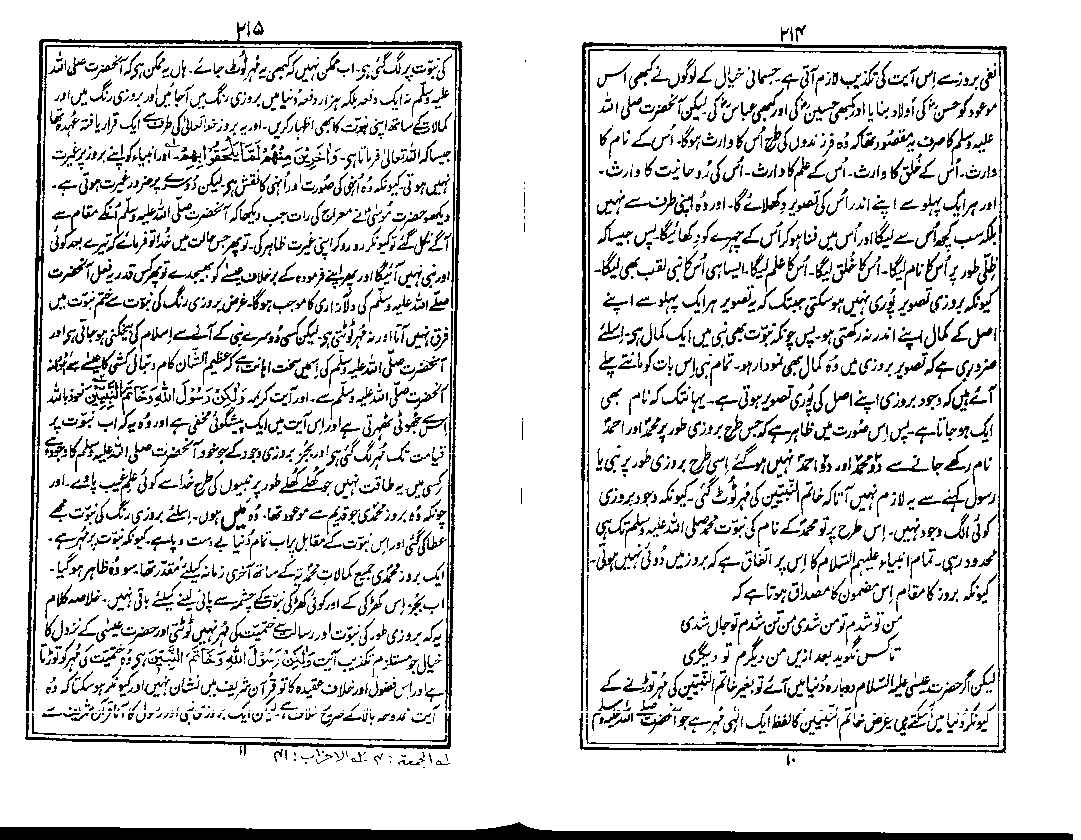 ۲۱۴
نفی بروز سے اس آیت کی تکذیب لازم آتی ہے۔ جسمانی خیال کے لوگوں نے کبھی اس
موعود کو حسنؓ کی اولاد بنایا اور کبھی حسینؓ کی اور کبھی عباسؓ کی لیکن آنحضرت صلی اللہ
علیہ وسلم کا صرف یہ مقصود تھا کہ وہ فرزندوں کی طرح اُس کا وارث ہوگا۔ اُس کے نام کا
وارث۔ اُس کے خُلق کا وارث۔ اُس کے علم کا وارث۔ اُس کی رُوحانیت کا وارث۔
اور ہر ایک پہلو سے اپنے اندر اُس کی تصویر دکھلائے گا۔ اور وہ اپنی طرف سے نہیں
بلکہ سب کچھ اُس سے لیگا اور اُس میں فنا ہو کر اُس کے چہرے کو دکھائیگا۔ پس جیسا کہ
ظلّی طور پر اُس کا نام لیگا۔ اُس کا خُلق لیگا۔ اُس کا علم لیگا۔ ایسا ہی اُس کا نبی لقب بھی لیگا۔
کیونکہ بروزی تصویر پُوری نہیں ہو سکتی جبتک کہ یہ تصویر ہر ایک پہلو سے اپنے
اصل کے کمال اپنے اندر نہ رکھتی ہو۔ پس چونکہ نبوّت بھی نبی میں ایک کمال ہی۔ اسلئے
ضروری ہے کہ تصویر بروزی میں وہ کمال بھی نمودار ہو۔ تمام نبی اس بات کو مانتے چلے
آئے ہیں کہ وجود بروزی اپنے اصل کی پُوری تصویر ہوتی ہے۔ یہانتک کہ نام بھی
ایک ہو جاتا ہے۔ پس اِس صورت میں ظاہر ہے کہ جس طرح بروزی طور پر محمدؐ اور احمدؐ
نام رکھے جانے سے دو محمدؐ اور دو احمدؐ نہیں ہو گئے اسی طرح بروزی طور پر نبی یا
رسول کہنے سے یہ لازم نہیں آتا کہ خاتم النّبیّین کی مُہر ٹوٹ گئی۔ کیونکہ وجود بروزی
کوئی الگ وجود نہیں۔ اِس طرح پر تو محمدؐ کے نام کی نبوّت محمد صلی اللہ علیہ وسلم تک ہی
محدود رہی۔ تمام انبیاء علیہم السّلام کا اِس پر اتفاق ہے کہ بروز میں دُوئی نہیں ہوتی۔
کیونکہ بروز کا مقام اِس مضمون کا مصداق ہوتا ہے کہ
من تو شدم تو من شدی من تن شدم تو جاں شدی
تا کس نگوید بعد ازیں من دیگرم تو دیگری
لیکن اگر حضرت عیسیٰ علیہ السلام دوبارہ دُنیا میں آئے تو بغیر خاتم النّبیّین کی مُہر توڑنے کے
کیونکر دُنیا میں آ سکتے ہیں۔ غرض خاتم النبیّین کا لفظ ایک الٰہی مُہر ہے جو آنحضرت صلی اللہ علیہ وسلم
۱۰
۲۱۵
کی نبوّت پر لگ گئی ہی۔ اب ممکن نہیں کہ کبھی یہ مُہر ٹوٹ جائے۔ ہاں یہ ممکن ہی کہ آنحضرت صلی اللہ
علیہ وسلم نہ ایک دفعہ بلکہ ہزار دفعہ دُنیا میں بروزی رنگ میں آجائیں اور بروزی رنگ میں اور
کمالات کے ساتھ اپنی نبوّت کا بھی اظہار کریں۔ اور یہ بروز خدا تعالیٰ کی طرف سے ایک قرار یافتہ عہدہ تھا
جیسا کہ اللہ تعالیٰ فرماتا ہی۔ وَاٰخَرِیْنَ مِنْهُمْ لَمَّا یَلْحَقُوْا بِهِمْ۱۔ اور انبیاء کو اپنے بروز پر غیرت
نہیں ہوتی۔ کیونکہ وہ اُنہی کی صورت اور اُنہی کا نقش ہی۔ لیکن دُوسرے پر ضرور غیرت ہوتی ہے۔
دیکھو حضرت موسیٰؑ نے معراج کی رات جب دیکھا کہ آنحضرت صلّی اللہ علیہ وسلّم اُنکے مقام سے
آگے نکل گئے تو کیونکر رو رو کر اپنی غیرت ظاہر کی۔ تو پھر جس حالت میں خدا تو فرمائے کہ تیرے بعد کوئی
اور نبی نہیں آئیگا اور پھر اپنے فرمودہ کے برخلاف عیسیٰ کو بھیجدے تو پھر کس قدر یہ فعل آنحضرت
صلے اللہ علیہ وسلم کی دلآزاری کا موجب ہوگا۔ غرض بروزی رنگ کی نبوّت سے ختم نبوّت میں
فرق نہیں آتا اور نہ مُہر ٹوٹتی ہی۔ لیکن کسی دُوسرے نبی کے آنے سے اسلام کی بیخکنی ہو جاتی ہی اور
آنحضرت صلی اللہ علیہ وسلم کی اِسمیں سخت اہانت ہے کہ عظیم الشان کام دجال کشی کا عیسیٰ سے ہوا نہ
آنحضرت صلی اللہ علیہ وسلم سے۔ اور آیت کریمہ وَلٰكِنْ رَّسُوْلَ اللّٰهِ وَخَاتَمَ النَّبِیّٖنَ۲ نعوذ باللہ
اس سے جھوٹی ٹھہرتی ہے اور اِس آیت میں ایک پیشگوئی مخفی ہے اور وہ یہ کہ اب نبوّت پر
قیامت تک مُہر لگ گئی ہی اور بجُز بروزی وجود کے جو خود آنحضرت صلی اللہ علیہ وسلم کا وجود ہے
کسی میں یہ طاقت نہیں جو کھلے کھلے طور پر نبیوں کی طرح خدا سے کوئی علمِ غیب پاوے۔ اور
چونکہ وہ بروز محمّدی جو قدیم سے موعود تھا۔ وہ میں ہوں۔ اِسلئے بروزی رنگ کی نبوّت مجھے
عطا کی گئی اور اس نبوّت کے مقابل پر اب تمام دُنیا بے دست و پا ہے کیونکہ نبوّت پر مُہر ہے۔
ایک بروز محمّدی جمیع کمالات محمّدیہ کے ساتھ آخری زمانہ کیلئے مقدّر تھا۔ سو وہ ظاہر ہو گیا۔
اب بجُز اِس کھڑکی کے اور کوئی کھڑکی نبوّت کے چشمہ سے پانی لینے کیلئے باقی نہیں۔ خلاصہ کلام
یہ کہ بروزی طور کی نبوّت اور رسالت سے ختمیّت کی مُہر نہیں ٹوٹتی اور حضرت عیسیٰ کے نزول کا
خیال جو مستلزم تکذیب آیت وَلٰكِنْ رَّسُوْلَ اللّٰهِ وَخَاتَمَ النَّبِیّٖنَ ہی وہ ختمیّت کی مُہر کو توڑتا
ہے اور اِس فضول اور خلاف عقیدہ کا تو قرآن شریف میں نشان نہیں اور کیونکر ہو سکتا کہ وہ
آیت ممدوحہ بالا کے صریح خلاف ہے۔ لیکن ایک بروزی نبی اور رسول کا آنا قرآن شریف سے
۱ہ الجمعۃ : ۴ ۲ہ الاحزاب : ۴۱
۱۱